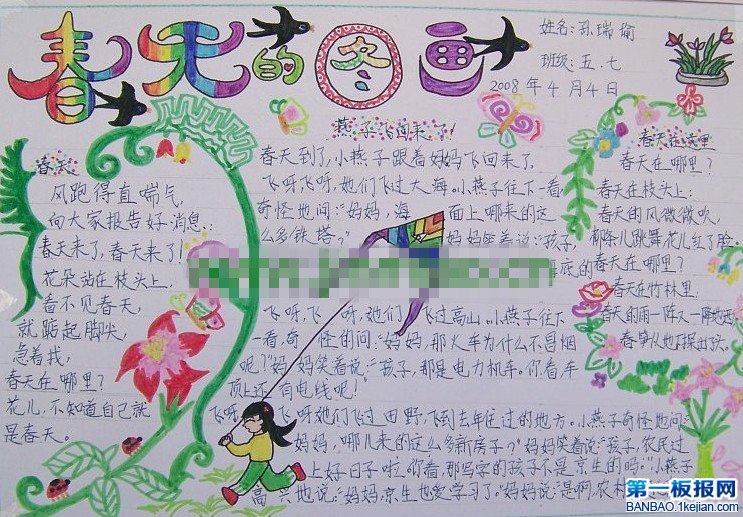 春天的图画
姓名:孙瑞瑜
班级:五.七
2008年4月4日
春天
风跑得直喘气,
向大家报告好消息:
春天来了,春天来了!
花朵站在枝头上,
看不见春天,
就踮起脚尖,
急着找,
春天在哪里?
花儿,不知道自己就
是春天。
燕子飞回来了!
春天到了,小燕子跟着妈妈飞回来了。
飞呀,飞呀,她们飞过大海。小燕子往下一看,
奇怪地问:“妈妈,海面上哪来的这
么多铁塔?”妈妈笑着说:“孩子,
海底的
飞呀,飞呀,她们飞过高山。小燕子往下
一看,奇怪的问:“妈妈,那火车为什么不冒烟
呢?”妈妈笑着说:“孩子,那是电力机车。你看车
顶上还有电线呢!
飞呀,飞呀她们飞过田野,飞到去年住过的地方。小燕子奇怪地问:
妈妈,哪儿来的这么多新房子?”妈妈笑着说:“孩子,农民过
上好日子啦。你看,那写字的孩子不是京生的吗?”小燕子
高兴地说:“妈妈,京生也爱学习了。”妈妈说:“是啊,农村
春天在哪里
春天在哪里?
春天在枝头上:
春天的风微微吹,
柳条儿跳舞花儿红了脸。
春天在哪里?
春天在竹林里:
春天的雨一阵又一阵
春笋从地下探出头。
第一板报网
BANBAO.1kejian.com